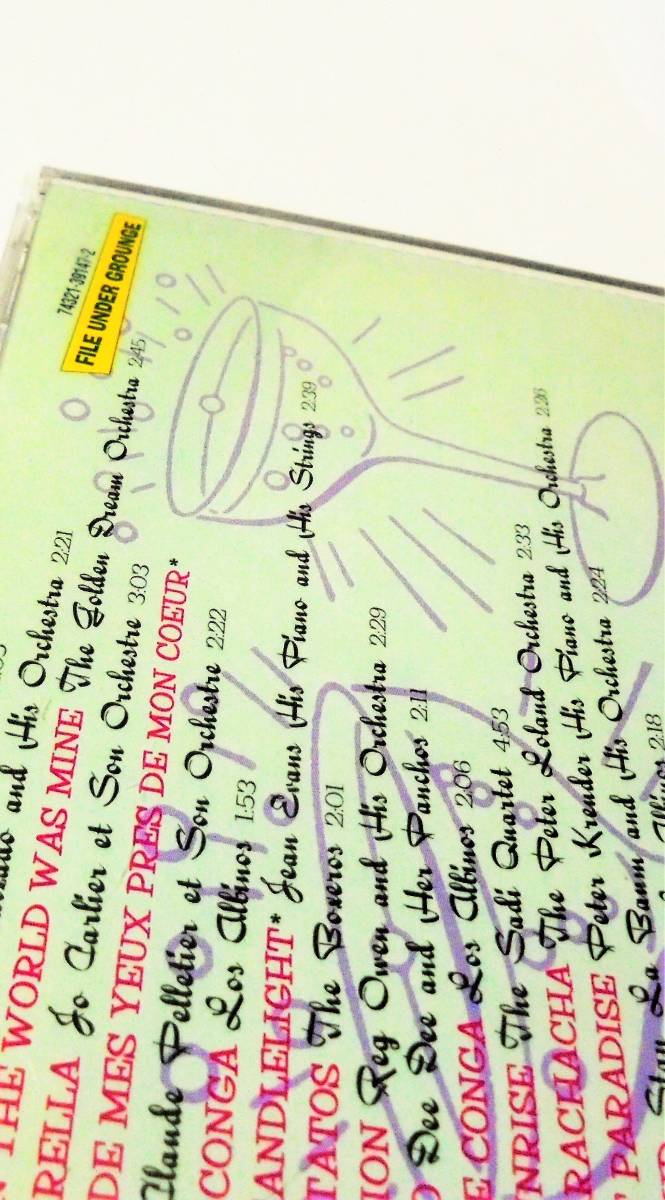 74321-39147-2
FILE UNDER GROUNGE
and His Orchestra 2:21
THE WORLD WAS MINE The Golden Dream Orchestra 2:45
RELLA Jo Carlier et Son Orchestre 3:03
DE MES YEUX PRES DE MON COEUR*
Claude Pelletier et Son Orchestre 2:22
CONGA Los Albinos 1:53
ANDLELIGHT* Jean Evans His Piano and His Strings 2:39
TATOS The Boneros 2:01
ION Reg Owen and His Orchestra 2:29
Dee Dee and Her Panchos 2:11
E CONGA Los Albinos 2:06
NRISE The Sadi Quartet 4:53
RACHACHA The Peter Loland Orchestra 2:33
PARADISE Peter Kreuder His Piano and His Orchestra 2:26
La Baum and His Orchestra 2:24
2:18